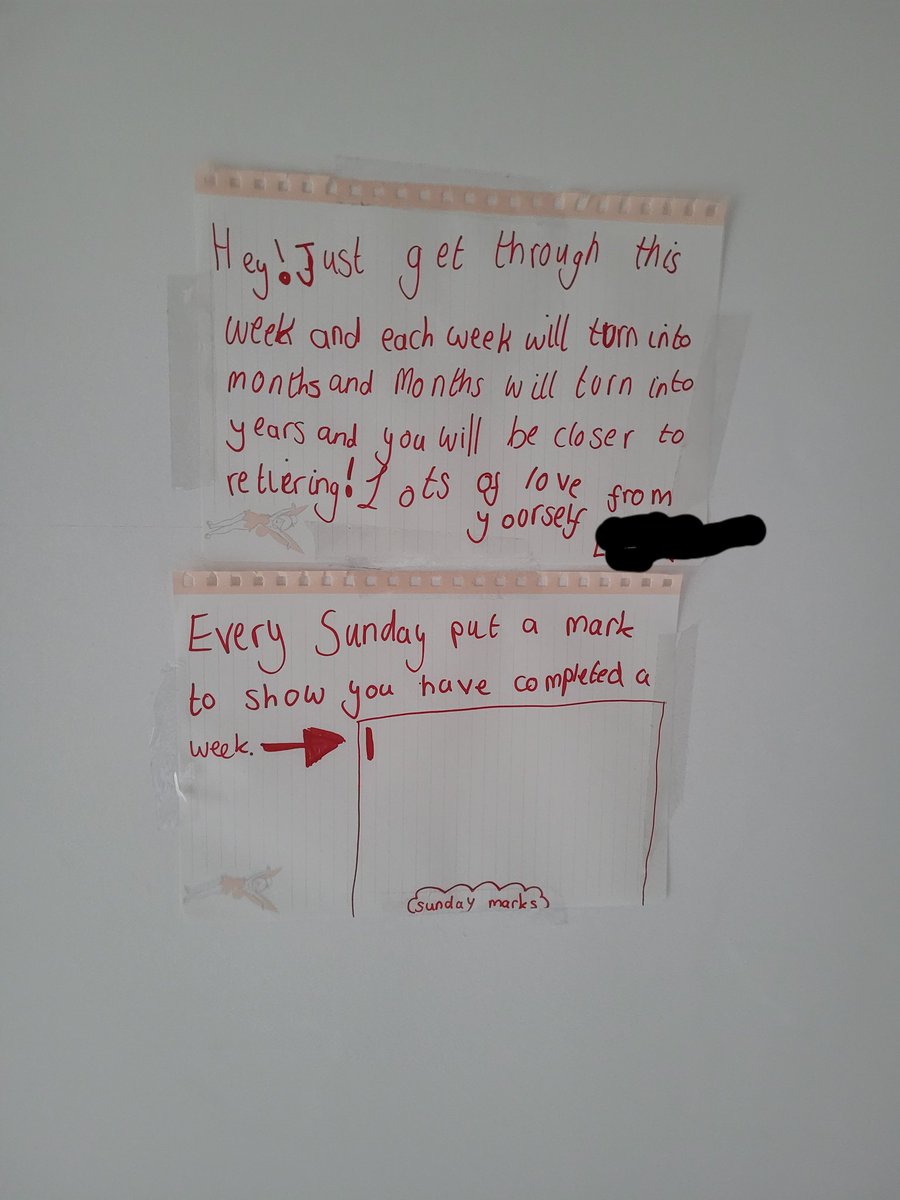 Hey! Just get through this
week and each week will torn into
months and Months will torn into
years and you will be closer to
retiering! Lots of love from
yoorself
Every Sunday put a mark
to show you have completed a
week.
(sunday marks)